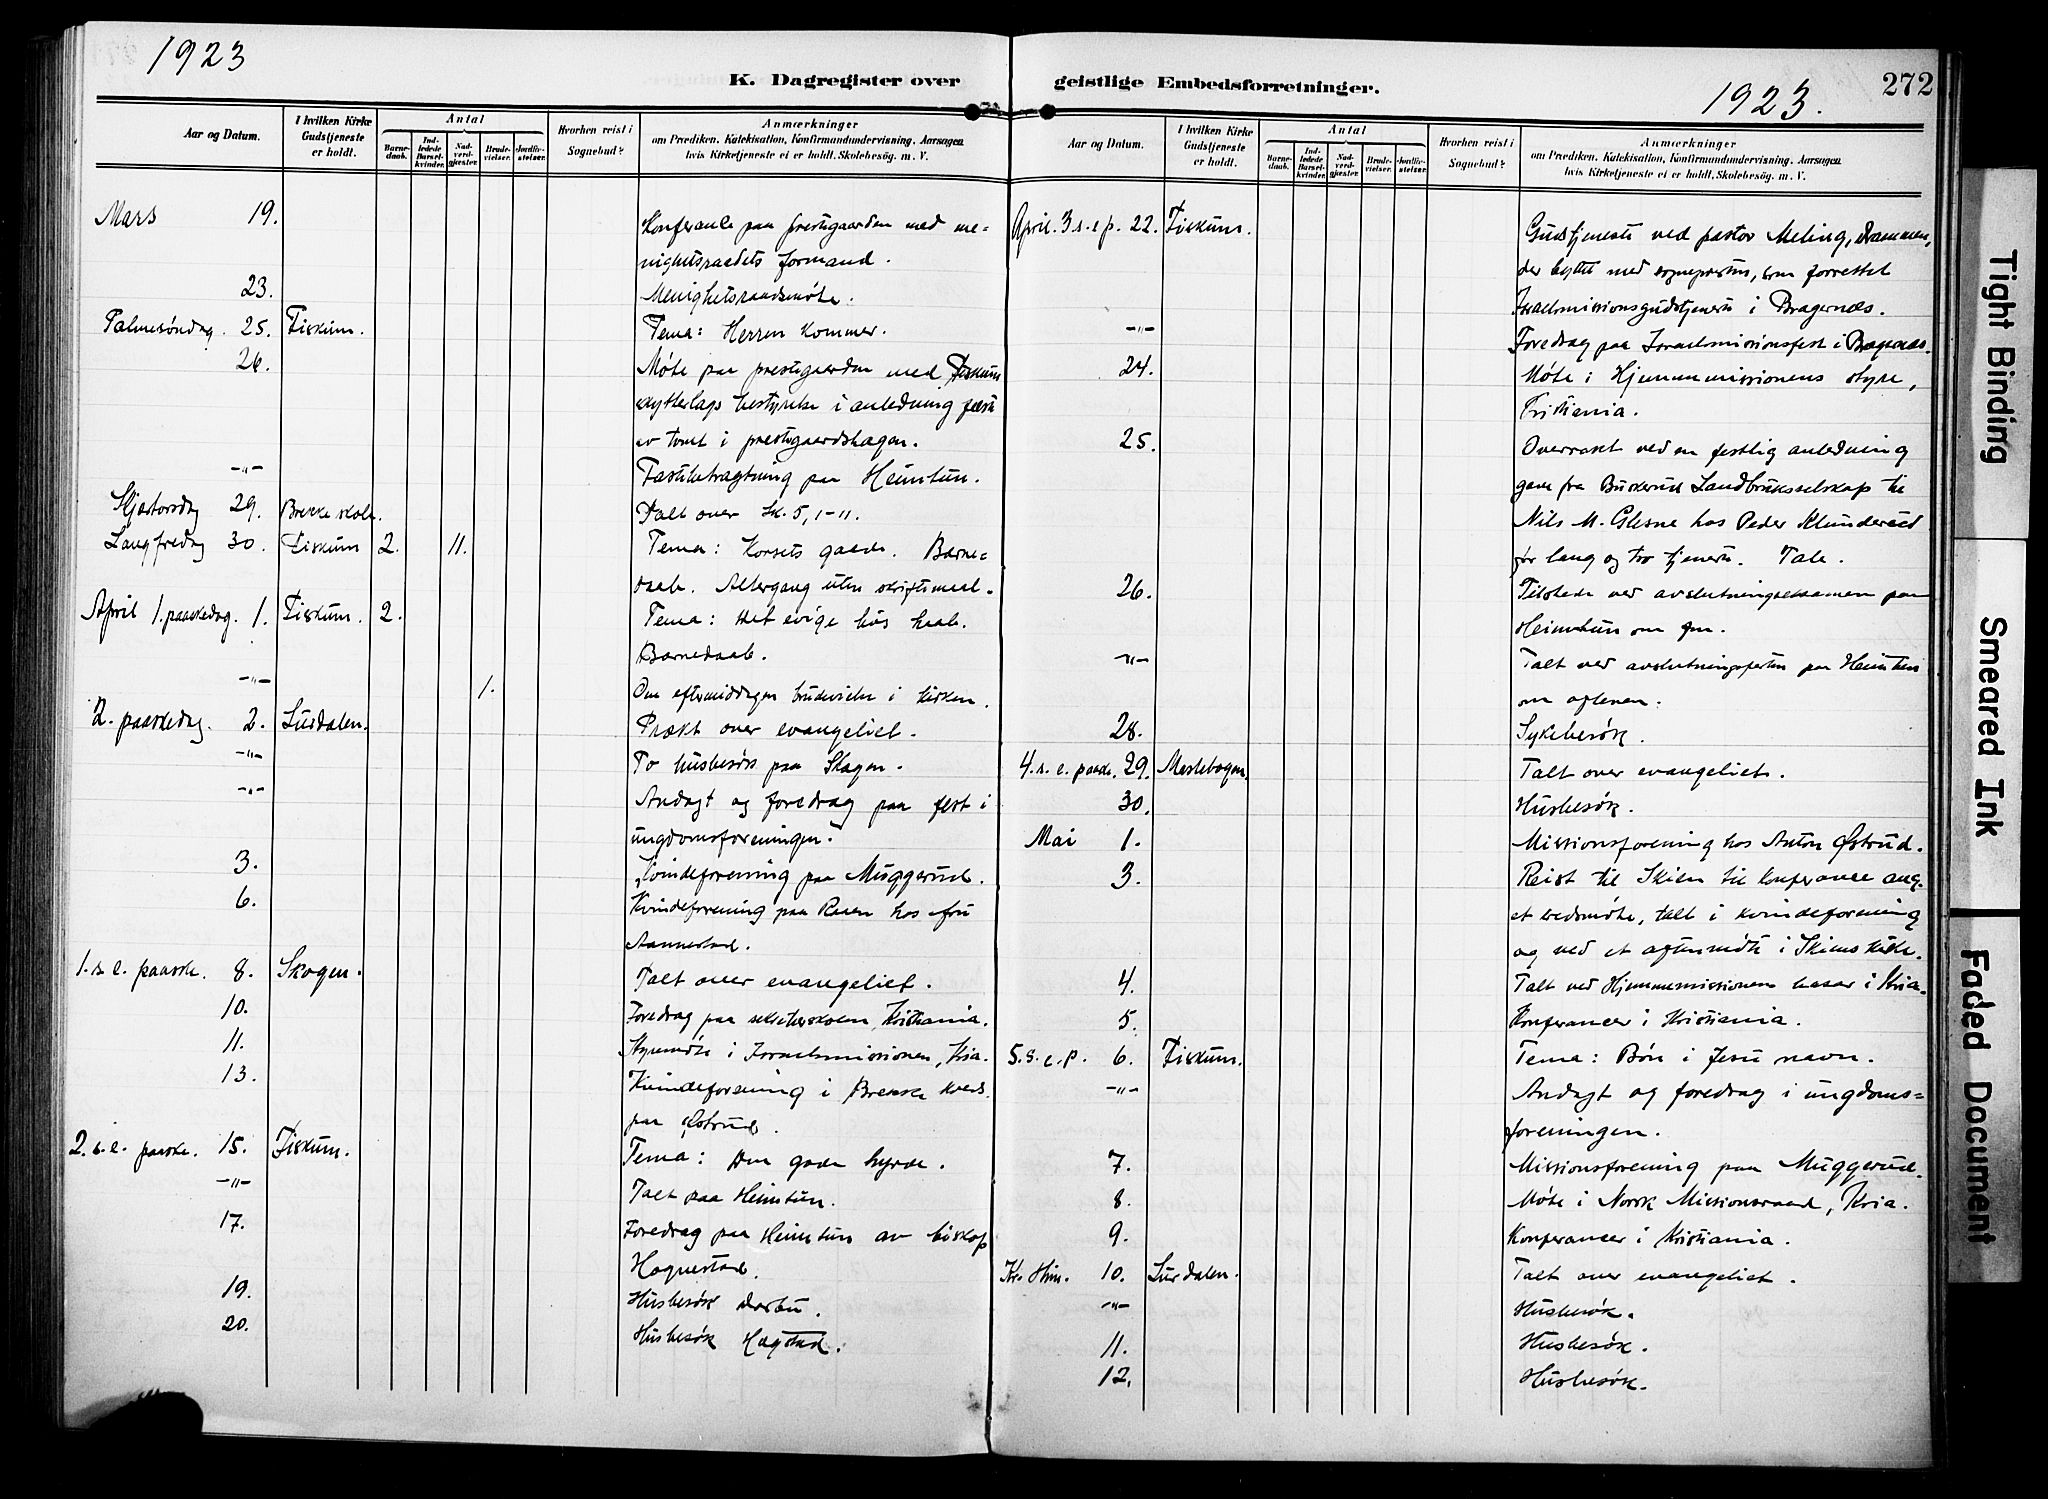 1923
K. Dagregister over
Aar og Datum.
I hvilken Kirke Gudstjeneste er holdt.
Antal
Barnedaab.
Indledede Barselkvinder.
Nadverdgjester.
Brudevielser.
Jordfæstelser.
Hvorhen reist i Sognebud?
Anmærkninger
om Prædiken, Katekisation, Konfirmandundervisning, Aarsagen
hvis Kirketjeneste ei er holdt, Skolebesøg. m. V.
Mars 19. Konferanse paa prestegaarden med me-
nighetsraadets formand.
23. Menighetsraadsmøte.
Palmesøndag. 25. Fiskum. Tema: Herren kommer.
26. Møte paa prestegaarden med Fiskum
skytterlags bestyrelse i anledning fæste
av tomt i prestegaardshagen.
-"- Fastebetragtning paa Heimtun.
Skjærtorsdag 29. Brekke skole. Talt over Lk. 5, 1-11.
Langfredag 30. Fiskum 2. 11. Tema: Korsets gaade. Barne-
daab. Altergang uten skriftemaal.
April 1. paaskedag. 1. Fiskum. 2. Tema: Det evige livs haab.
Barnedaab.
-"- 1. Om eftermiddagen brudevielse i kirken.
2. paaskedag. 2. Lurdalen. Prækt over evangeliet.
-"- To husbesøk paa Skogen.
-"- Andagt og foredrag paa fest i
ungdomsforeningen.
3. Kvindeforening paa Muggerud.
6. Kvindeforening paa Ruen hos fru
Aannestad.
1. s. e. paaske. 8. Skogen. Talt over evangeliet.
10. Foredrag paa sekretærskolen, Kristiania.
11. Styremøte i Israelsmissionen, Kria.
13. Kvindeforening i Brekke kreds
paa Østrud.
2. s. e. paaske. 15. Fiskum. Tema: Den gode hyrde.
-"- Talt paa Heimtun.
17. Foredrag paa Heimtun av biskop
Hognestad.
19. Husbesøk Darbu.
20. Husbesøk Hagstad.
geistlige Embedsforretninger.
1923.
272
Aar og Datum.
I hvilken Kirke Gudstjeneste er holdt.
Antal
Barnedaab.
Indledede Barselkvinder.
Nadverdgjester.
Brudevielser.
Jordfæstelser.
Hvorhen reist i Sognebud?
Anmærkninger
om Prædiken, Katekisation, Konfirmandundervisning, Aarsagen
hvis Kirketjeneste ei er holdt, Skolebesøg. m. V.
April. 3 s. e p. 22. Fiskum. Gudstjeneste ved pastor Meling, Drammen,
der byttet med sognepresten, som forrettet
Israelsmissionsgudstjeneste i Bragernes.
-"- Foredrag paa Israelsmissionsfest i Bragernes.
24. Møte i Hjemmemissionens styre,
Kristiania.
25. Overrakt ved en festlig anledning
gave fra Buskerud Landbruksselskap til
Nils M. Glesne hos Peder Klunderud
for lang og tro tjeneste. Tale.
26. Tilstede ved avslutningseksamen paa
Heimtun om fm.
-"- Talt ved avslutningsfesten paa Heimtun
om aftenen.
28. Sykebesøk.
4. s. e. paaske. 29. Mastebogen. Talt over evangeliet.
30. Husbesøk.
Mai 1. Missionsforening hos Anton Østrud.
3. Reist til Skien til konferanse ang.
et stedsmøte, talt i kvindeforening
og ved et aftenmøte i Skiens kirke.
4. Talt ved Hjemmemissionens basar i Kria.
5. Konferanser i Kristiania.
5. s. e. p. 6. Fiskum. Tema: Bøn i Jesu navn.
-"- Andagt og foredrag i ungdoms-
foreningen.
7. Missionsforening paa Muggerud.
8. Møte i Norsk Missionsraad, Kria.
9. Konferanser i Kristiania.
Kr. Him. 10. Lurdalen. Talt over evangeliet.
-"- Husbesøk.
11. Husbesøk.
12. Husbesøk.
Tight Binding
Smeared Ink
Faded Document